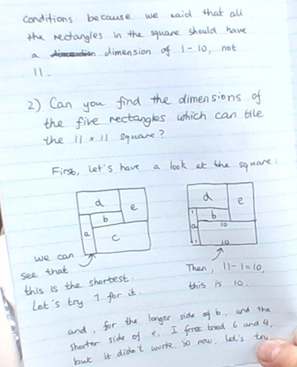 conditions because we said that all
the rectangles in the square should have
a dimension of 1-10, not
11.
2) Can you find the dimensions of
the five rectangles which can tile
the 11 × 11 square?
First, let's have a look at the square:
d
e
b
a
c
d
e
b
a
10
10
we can
see that
this is the shortest.
Let's try 1 for it.
Then, 11-1=10,
this is 10.
and, for the longer side of b, and the
shorter side of e, I first tried 6 and 4,
but it didn't work. So now, let's try